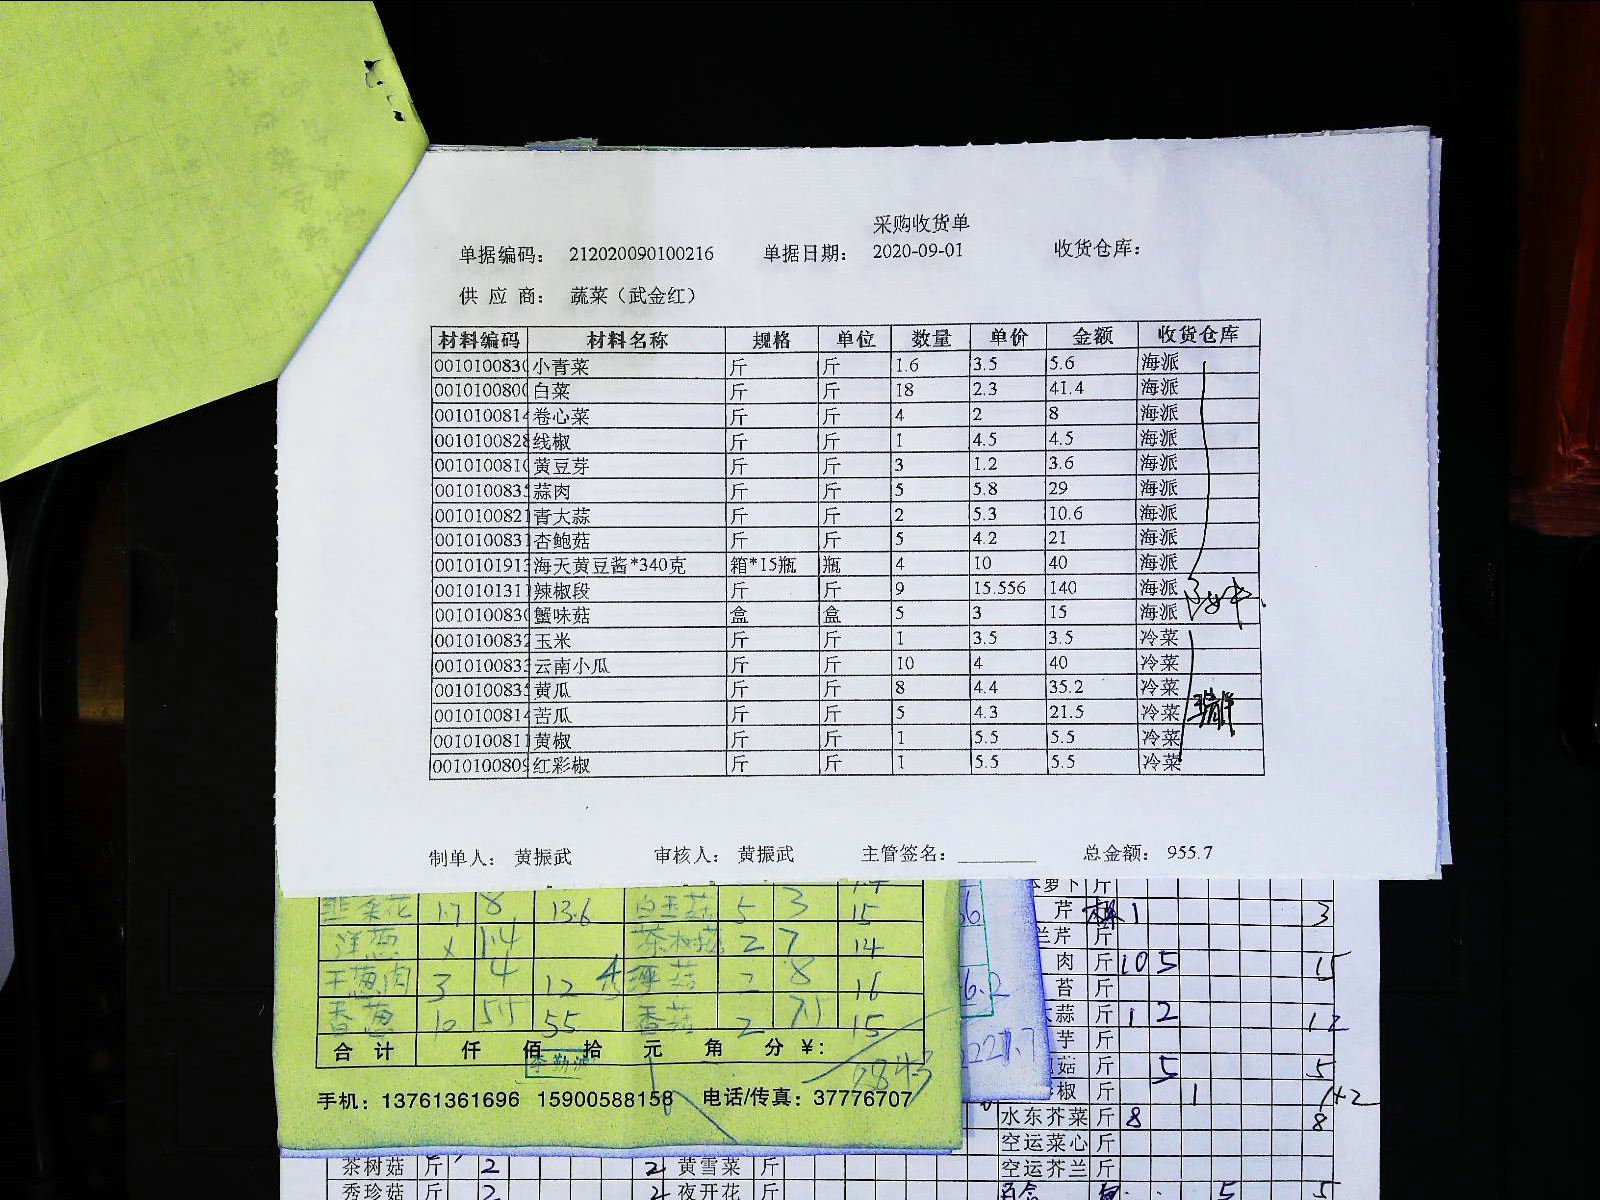 采购收货单
单据编码： 212020090100216 单据日期： 2020-09-01 收货仓库：
供 应 商： 蔬菜（武金红）
材料编码 材料名称 规格 单位 数量 单价 金额 收货仓库
001010083 小青菜 斤 斤 1.6 3.5 5.6 海派
001010080 白菜 斤 斤 18 2.3 41.4 海派
001010081 卷心菜 斤 斤 4 2 8 海派
0010100828 线椒 斤 斤 1 4.5 4.5 海派
001010081 黄豆芽 斤 斤 3 1.2 3.6 海派
001010083 蒜肉 斤 斤 5 5.8 29 海派
001010082 青大蒜 斤 斤 2 5.3 10.6 海派
001010083 杏鲍菇 斤 斤 5 4.2 21 海派
001010191 海天黄豆酱*340克 箱*15瓶 瓶 4 10 40 海派
001010131 辣椒段 斤 斤 9 15.556 140 海派
001010083 蟹味菇 盒 盒 5 3 15 海派
001010083 玉米 斤 斤 1 3.5 3.5 冷菜
001010083 云南小瓜 斤 斤 10 4 40 冷菜
001010083 黄瓜 斤 斤 8 4.4 35.2 冷菜
001010081 苦瓜 斤 斤 5 4.3 21.5 冷菜
001010081 黄椒 斤 斤 1 5.5 5.5 冷菜
001010080 红彩椒 斤 斤 1 5.5 5.5 冷菜
制单人： 黄振武 审核人： 黄振武 主管签名： 总金额： 955.7
韭菜花 1.7 8 13.6 白玉菇 5 3 15
洋葱 x 1.4 茶树菇 2 7 14
干葱肉 3 4 12 菇 2 8 16
香葱 10 5.5 55 香菇 2 7.5 15
合 计 仟 佰 拾 元 角 分 ¥：
手机：13761361696 15900588158 电话/传真：37776707
萝卜 斤
芹 1 3
兰芹 斤
肉 斤 10 5 15
苔 斤
蒜 斤 1 2
芋 斤
菇 斤 5 5
椒 斤 1 1+2
水东芥菜 斤 8 8
空运菜心 斤
空运芥兰 斤
茶树菇 斤 2 2 黄雪菜 斤
秀珍菇 斤 2 2 夜开花 斤
百合 5 5